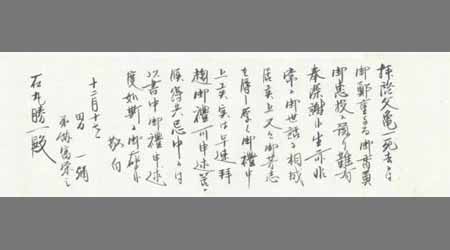 拝啓父亀一死去に
御鄭重なる御香奠
御恵投に預り難有
奉深謝候生前非
常に御世話に相成
居候上又々御芳志
を辱し厚く御禮申
上候実は早速拝
趨御禮可申述筈の
候得共忌中に付
以書中御禮申述
度如斯に御座候
敬白
十二月十七日
男 一誦
石井勝一殿